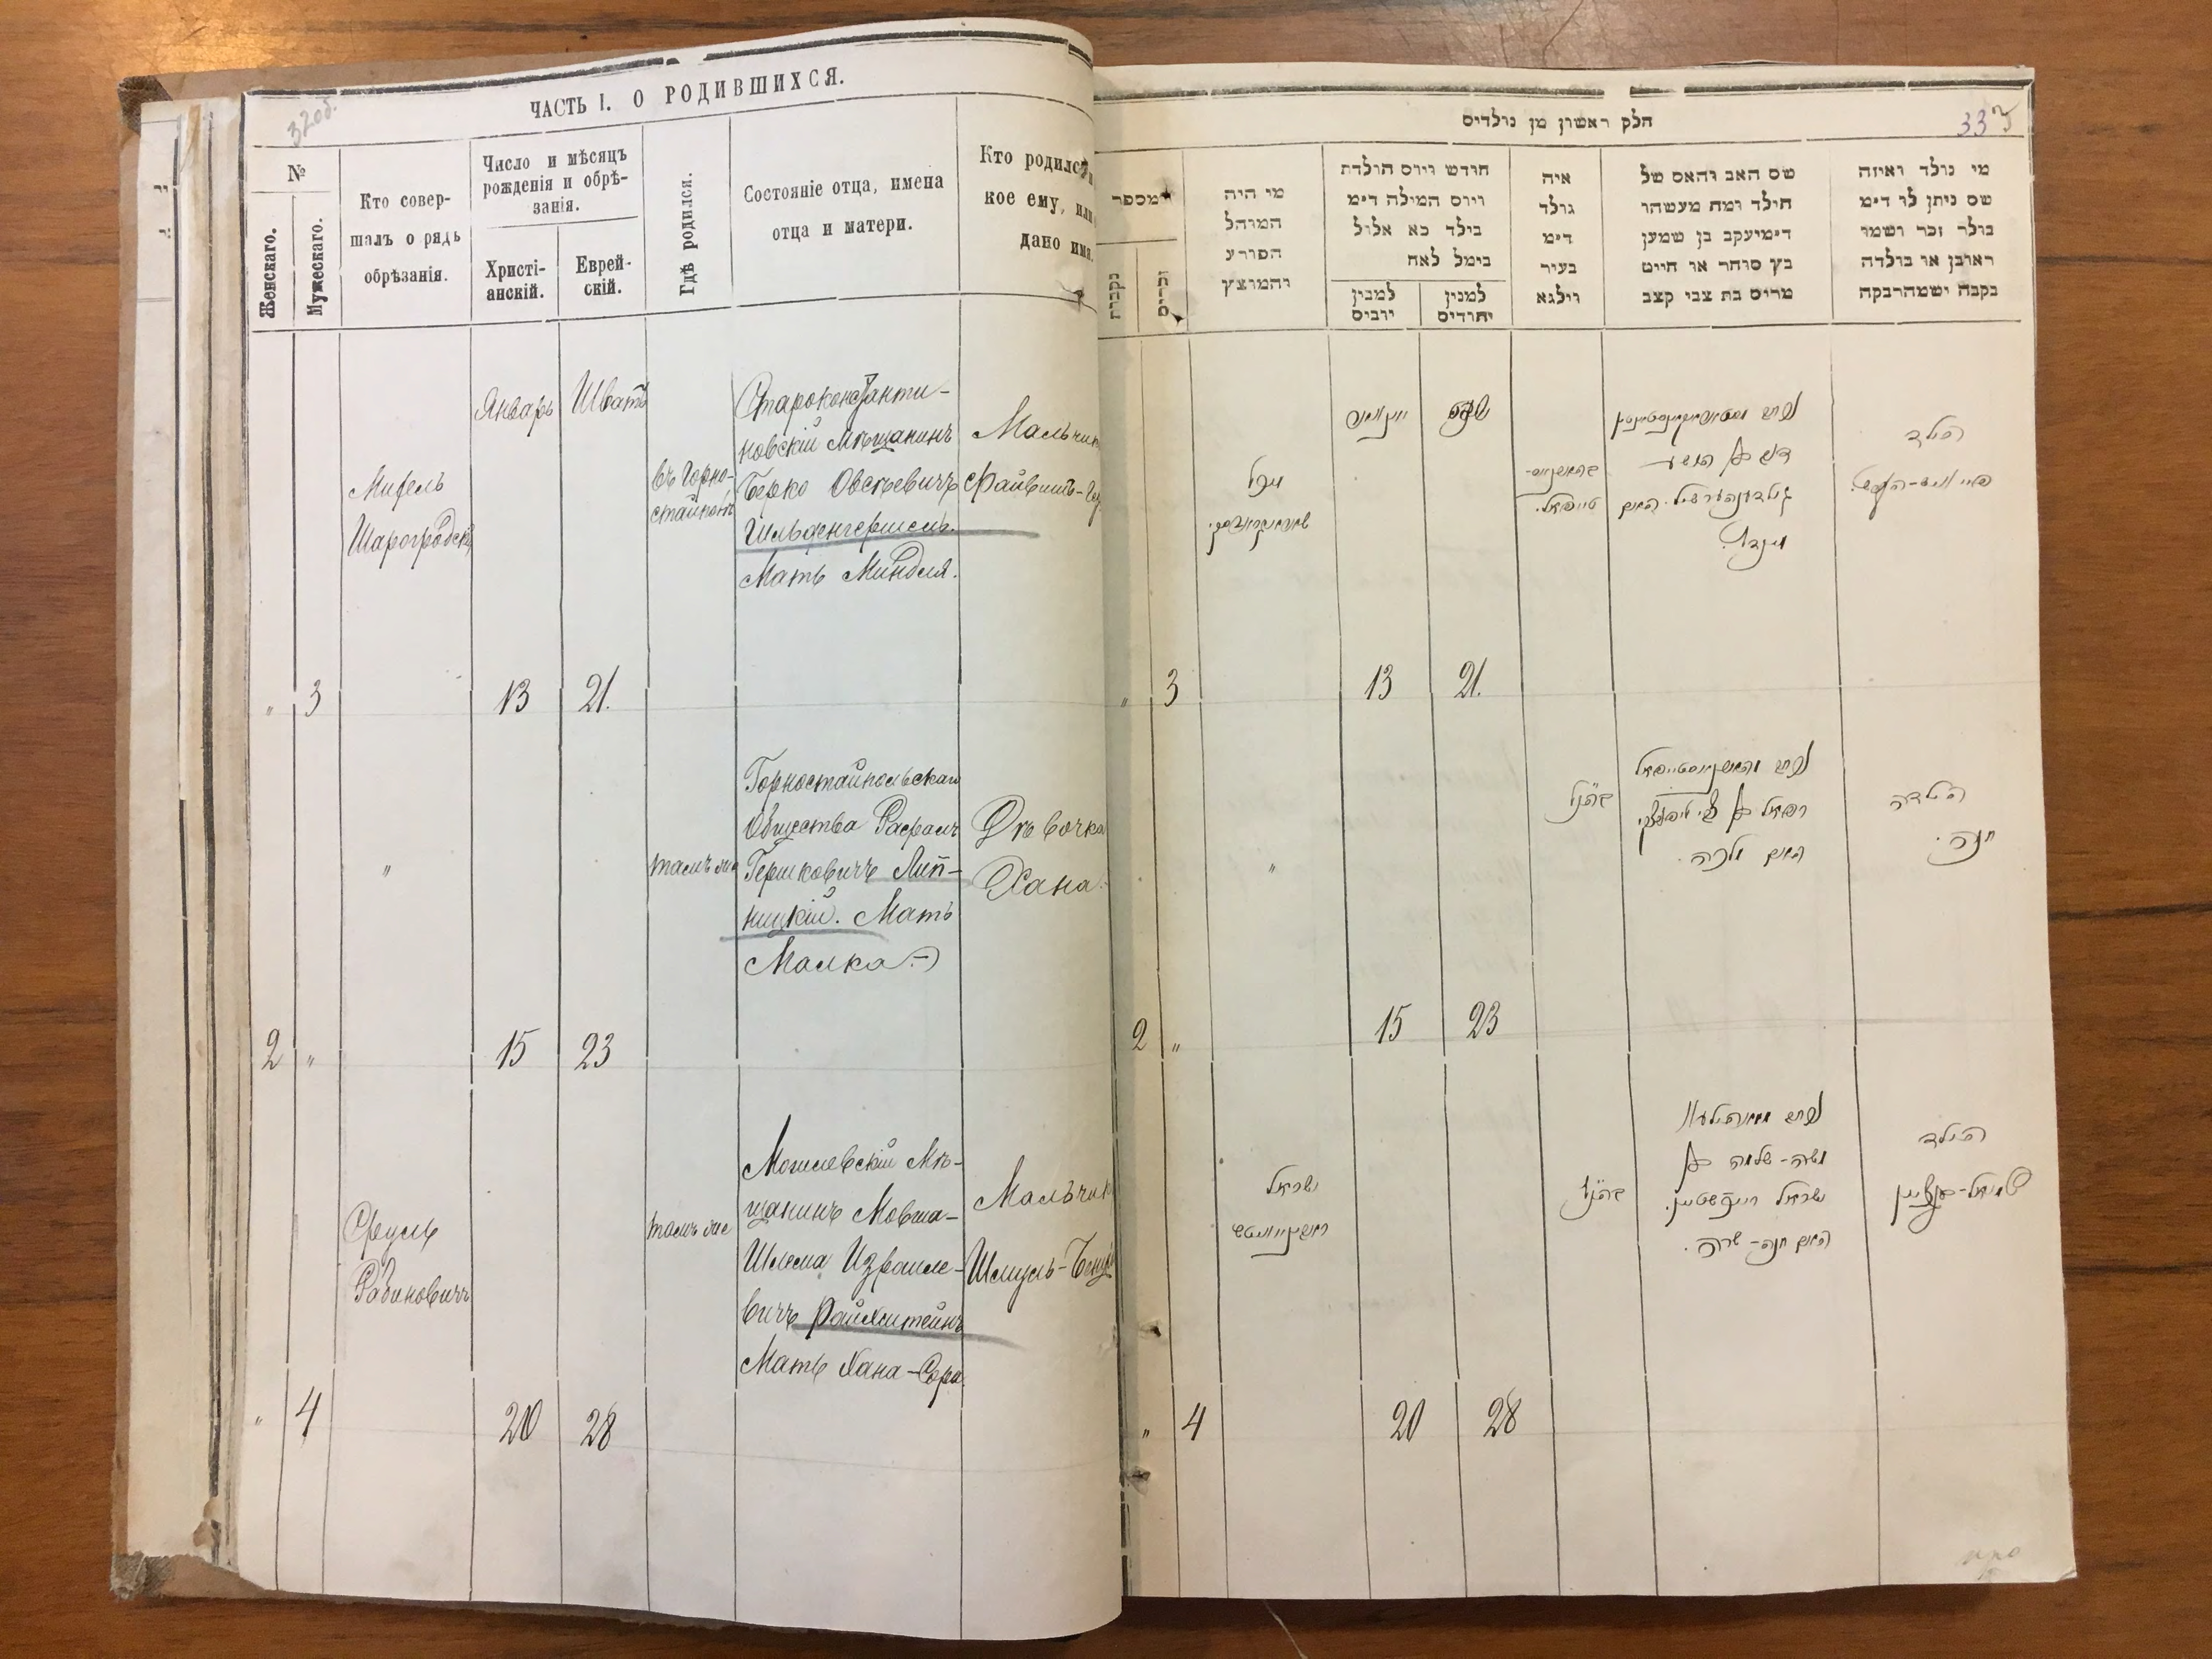 32об.
ЧАСТЬ I. О РОДИВШИХСЯ.
№
Женскаго.
Мужескаго.
Кто совер-
шалъ о рядъ
обрѣзанія.
Число и мѣсяцъ
рожденія и обрѣ-
занія.
Христі-
анскій.
Еврей-
скій.
Гдѣ родился.
Состояніе отца, имена
отца и матери.
Кто родилс
кое ему, или
дано имя.
Январь
Шватъ
Михель
Шарогродскі
въ Горно-
стайполѣ
Староконстанти-
новскій Мѣщанинъ
Берко Овсѣевичъ
Гильденгершель.
Мать Миндля.
Мальчик
Файвишъ-
" 3 13 21.
"
тамъ же
Горностайпольскаго
Общества Рафаилъ
Гершковичъ Лип-
ницкій. Мать
Малка
Дѣвочка
Хана.
2 " 15 23
Сруль
Рабиновичъ
тамъ же
Могилевскій Мѣ-
щанинъ Мовша-
Шлема Израиле-
вичъ Райхштейнъ
Мать Хана-Сура.
Мальчик
Шмуль-
" 4 20 28
חלק ראשון מן נולדים
33
מספר
נקבות
זכרים
מי היה
המוהל
הפורע
והמוצץ
חודש ויום הולדת
ויום המילה דימ
בילד כא אלול
בימל לאח
למנין
יהודים
למנין
יונים
איה
נולד
דימ
בעיר
וילנא
שם האב והאם של
הילד ומה מעשהו
דימיעקב בן שמען
בץ סוחר או חייט
מרים בת צבי קצב
מי נולד ואיזה
שם ניתן לו דימ
נולד זכר ושמו
ראובן או נולדה
נקבה ושמהרבקה
שבט
יאנואר
מיכל
הילד
מינדל.
" 3 13 21.
הילדה
חנה.
רפאל בן צבי
האם מלכה.
"
2 " 15 23
הילד
משה-שלמה בן
ישראל רייכשטיין.
האם חנה-שרה.
ישראל
ראבינאוויטש
" 4 20 28